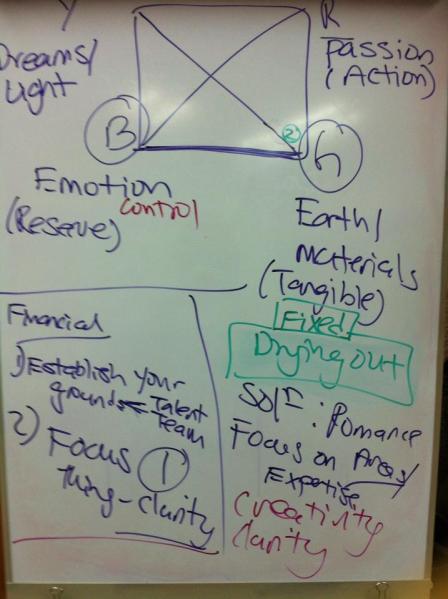 Y
Dreams/
Light
R
Passion
(Action)
B
2
G
Emotion
Control
(Reserve)
Earth/
Materials
(Tangible)
Fixed
Drying out
Financial
1) Establish your
grounds = Talent
Team
2) Focus 1
Thing - clarity
Romance
Focus on Area/
Expertise
Creativity
Clarity